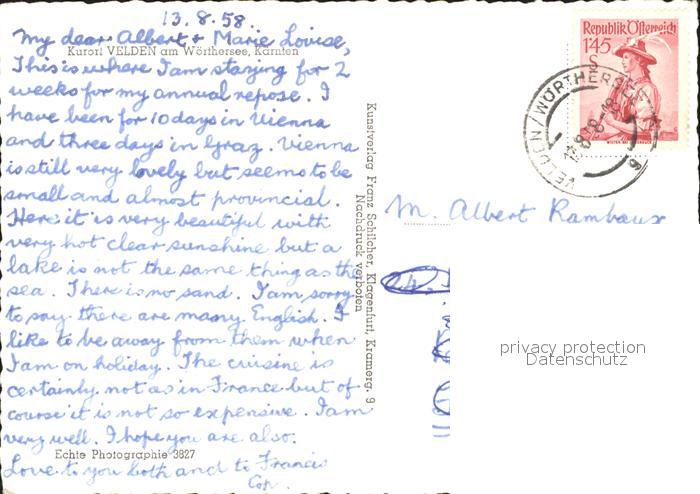 13.8.58.
My dear Albert & Marie Louise,
Kurort VELDEN am Wörthersee, Kärnten
This is where I am staying for 2
weeks for my annual repose. I
have been for 10 days in Vienna
and three days in Graz. Vienna
is still very lovely but seems to be
small and almost provincial.
Here it is very beautiful with
very hot clear sunshine but a
lake is not the same thing as the
sea. There is no sand. I am sorry
to say there are many English. I
like to be away from them when
I am on holiday. The cuisine is
certainly not as in France but of
course it is not so expensive. I am
very well. I hope you are also.
Echte Photographie 3827
Love to you both and to Francis
Kunstverlag Franz Schilcher, Klagenfurt, Kramerg. 9
Nachdruck verboten
Republik Österreich
1'45
S
VELDEN/WÖRTHERSEE
M. Albert Rambaux
privacy protection
Datenschutz